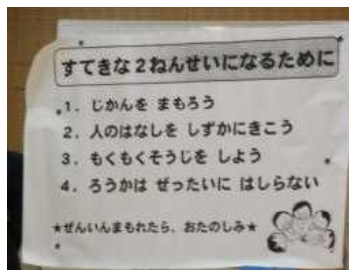 すてきな2ねんせいになるために
1. じかんを まもろう
2. 人のはなしを しずかにきこう
3. もくもくそうじを しよう
4. ろうかは ぜったいに はしらない
★ぜんいんまもれたら、おたのしみ★